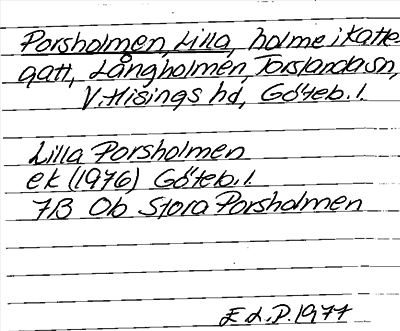 Porsholmen, Lilla, holme i Katte-
gatt, Långholmen, Torslanda sn,
V. Hisings hd, Göteb. l.
Lilla Porsholmen
ek (1976) Göteb. l.
7B Ob Stora Porsholmen
E.L.P. 1977